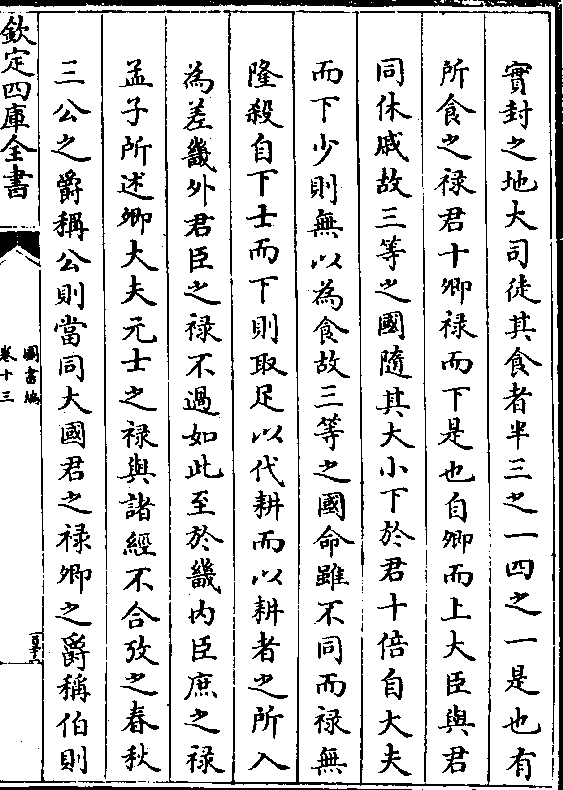 實封之地大司徒其食者半三之一四之一是也有
所食之禄君十卿禄而下是也自卿而上大臣與君
同休戚故三等之國隨其大小下於君十倍自大夫
而下少則無以為食故三等之國命雖不同而禄無
隆殺自下士而下則取足以代耕而以耕者之所入
為差畿外君臣之禄不過如此至於畿内臣庶之禄
孟子所述卿大夫元士之禄與諸經不合攷之春秋
三公之爵稱公則當同大國君之禄卿之爵稱伯則
欽定四庫全書
圖書編
卷十三